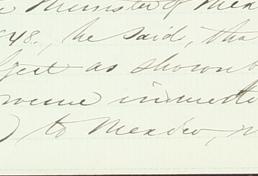 Minister of Mex
48., he said, tha
ject as shown b
to Mexico,